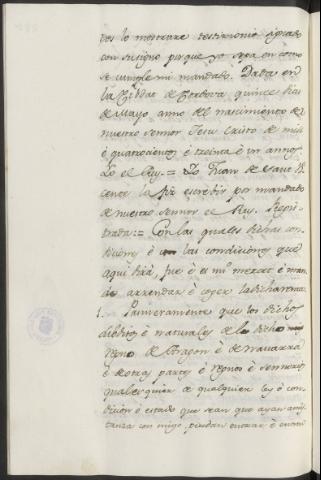 vos lo mostrare testimonio signado
con su signo porque yo sepa en como
se cumple mi mandado. Dada en
la Cibdat de Cordova quince dias
de Mayo anno del nascimiento de
nuestro sennor Jesu Cristo de mill
è quatrocientos è treinta è un annos.
Yo el Rey. = Yo Juan de
la fiz escrebir por mandado
de nuestro sennor el Rey. Regis-
trada: = Con las quales dichas con-
diciones è con las condiciones que
aqui dirá, fue è es mi mercet è man-
do arrendar è coger la dicha renta:
1. Primeramente que los dichos
sibditos è naturales de los dichos
regnos de Aragon è de Navarra
è de otras partes è regnos è sennorios
qualesquier de qualquier ley è con-
dicion è estado que sean que ayan amis-
tanza con migo, puedan entrar è